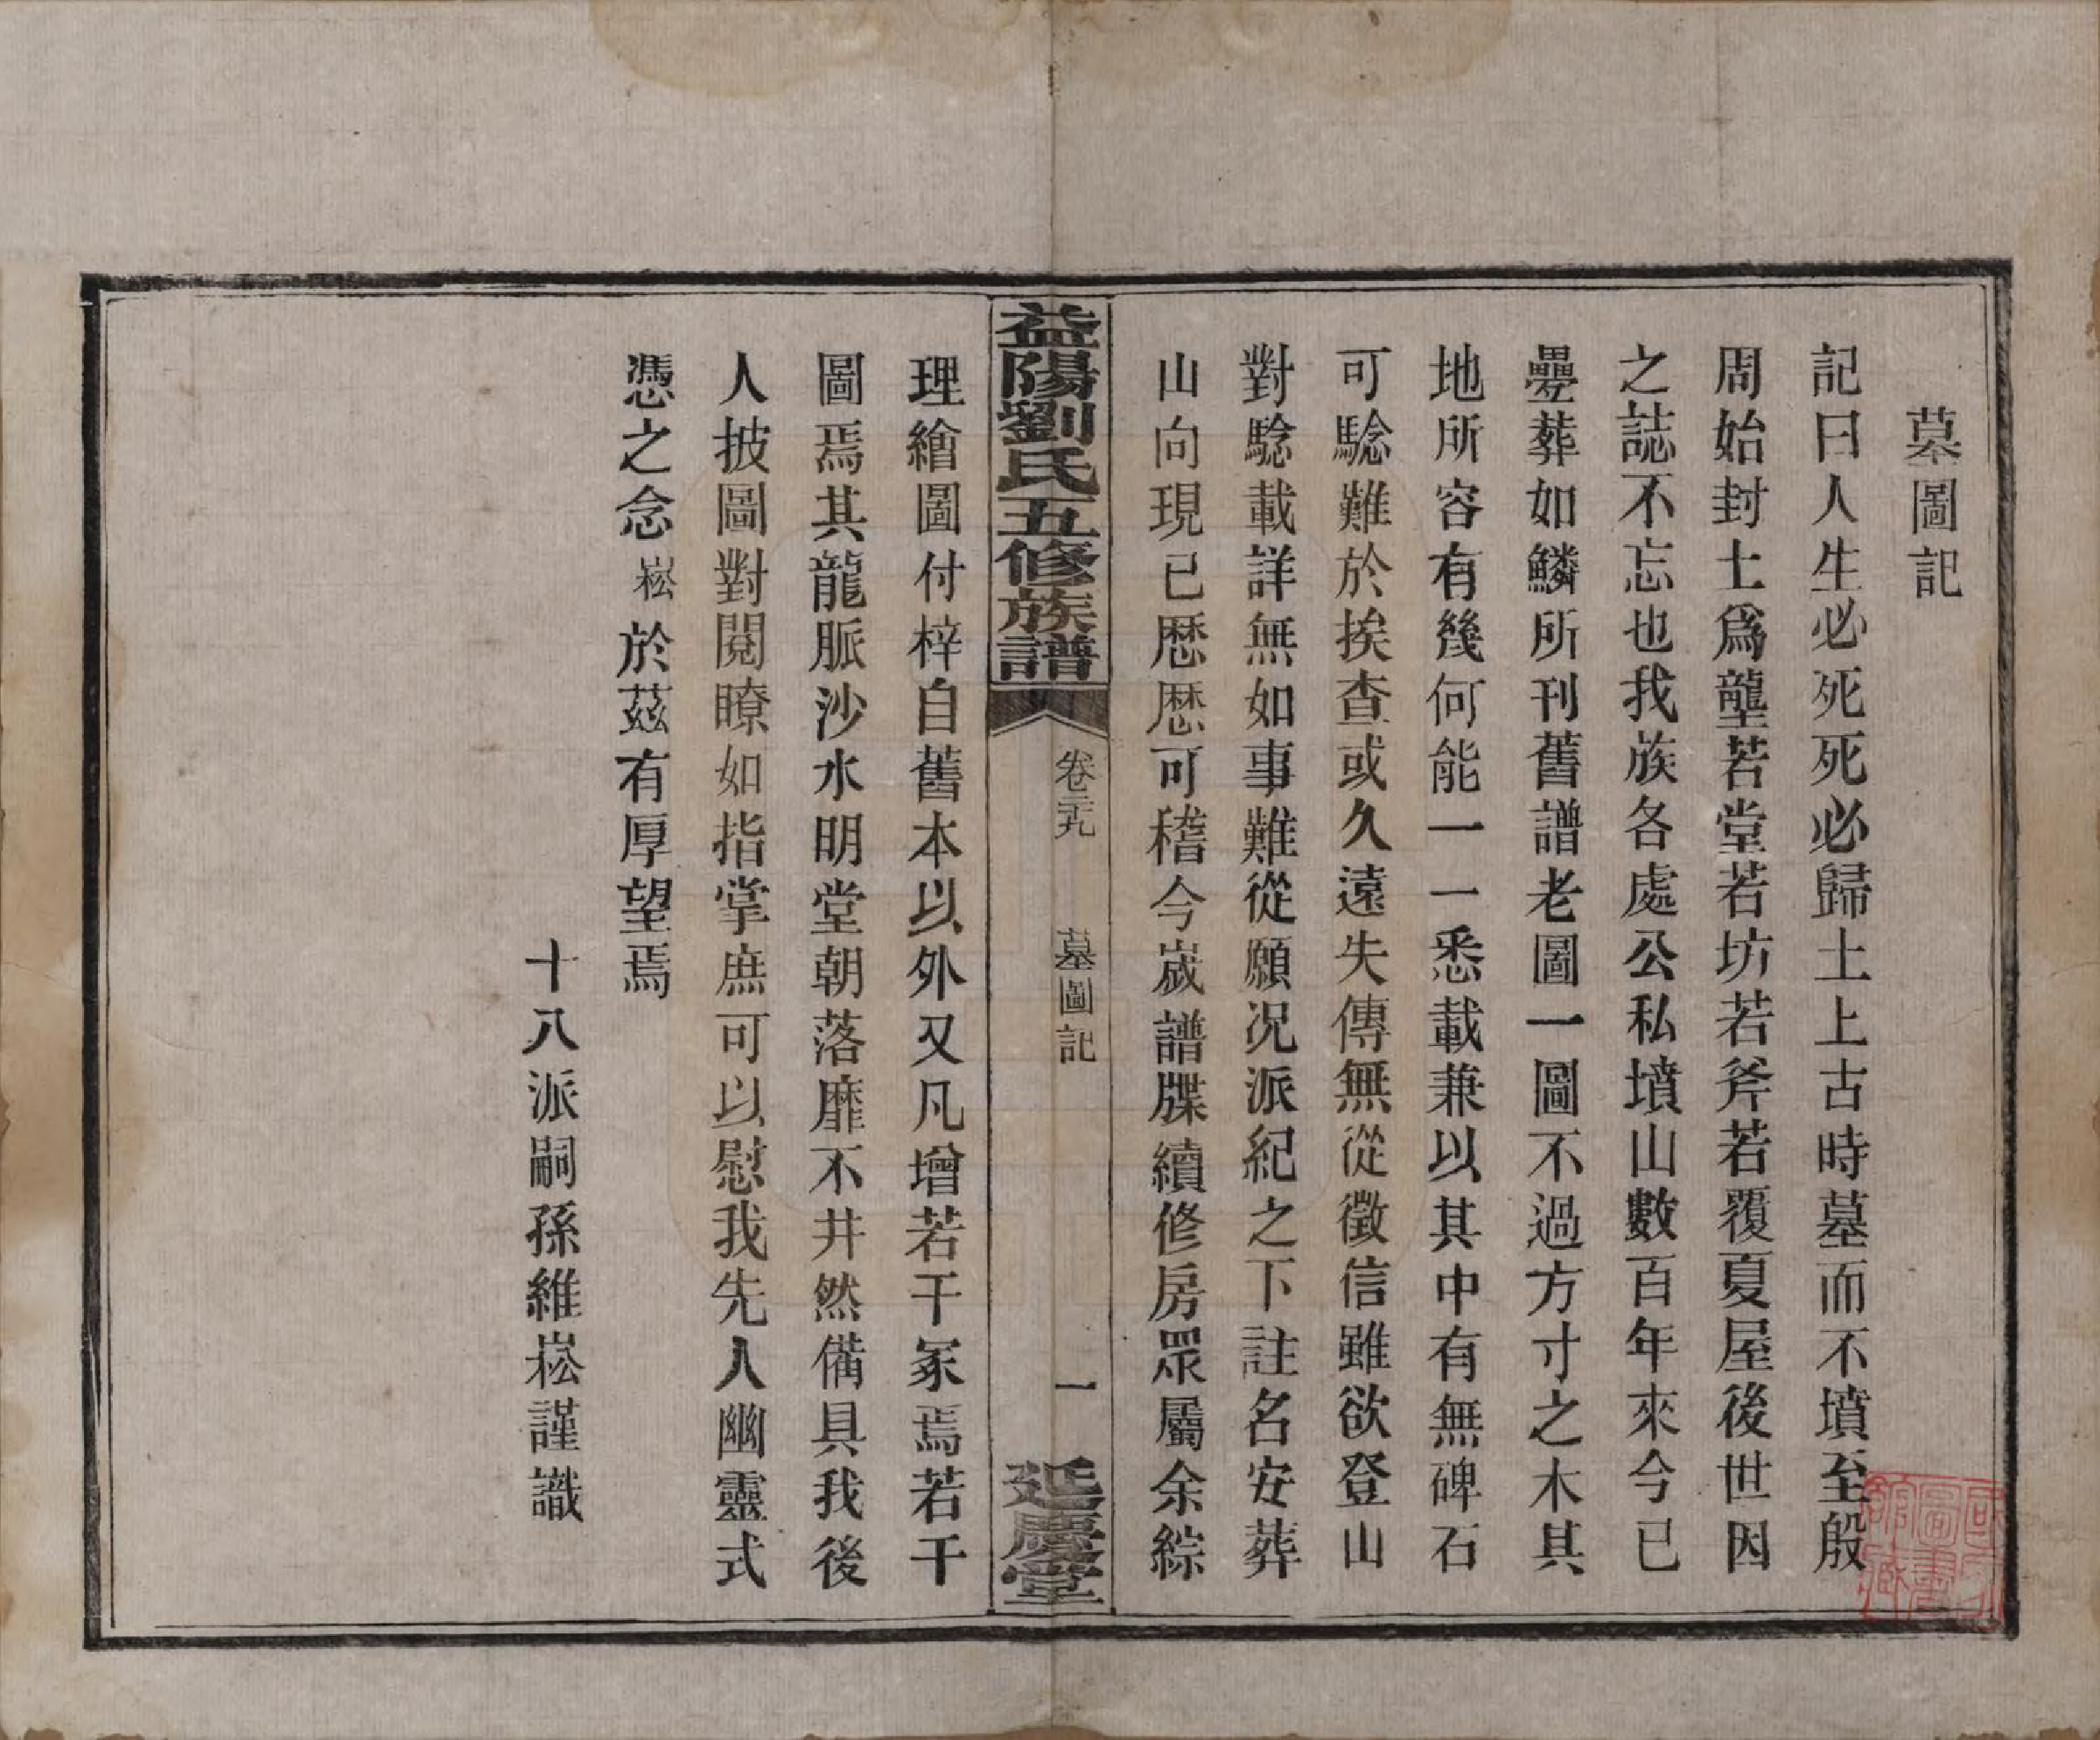 墓圖記
記曰人生必死死必歸土上古時墓而不墳至殷
周始封土爲壟若堂若坊若斧若覆夏屋後世因
之誌不忘也我族各處公私墳山數百年來今已
疊葬如鱗所刊舊譜老圖一圖不過方寸之木其
地所容有幾何能一一悉載兼以其中有無碑石
可騐難於挨查或久遠失傳無從徵信雖欲登山
對騐載詳無如事難從願况派紀之下註名安葬
山向現已歷歷可稽今嵗譜牒續修房眾屬余綜
益陽劉氏五修族譜
卷三十九
墓圖記
一
延慶堂
理繪圖付梓自舊本以外又凡增若干冢焉若干
圖焉其龍脈沙水明堂朝落靡不井然備具我後
人披圖對閱瞭如指掌庶可以慰我先人幽靈式
憑之念崧於茲有厚望焉
十八派嗣孫維崧謹識